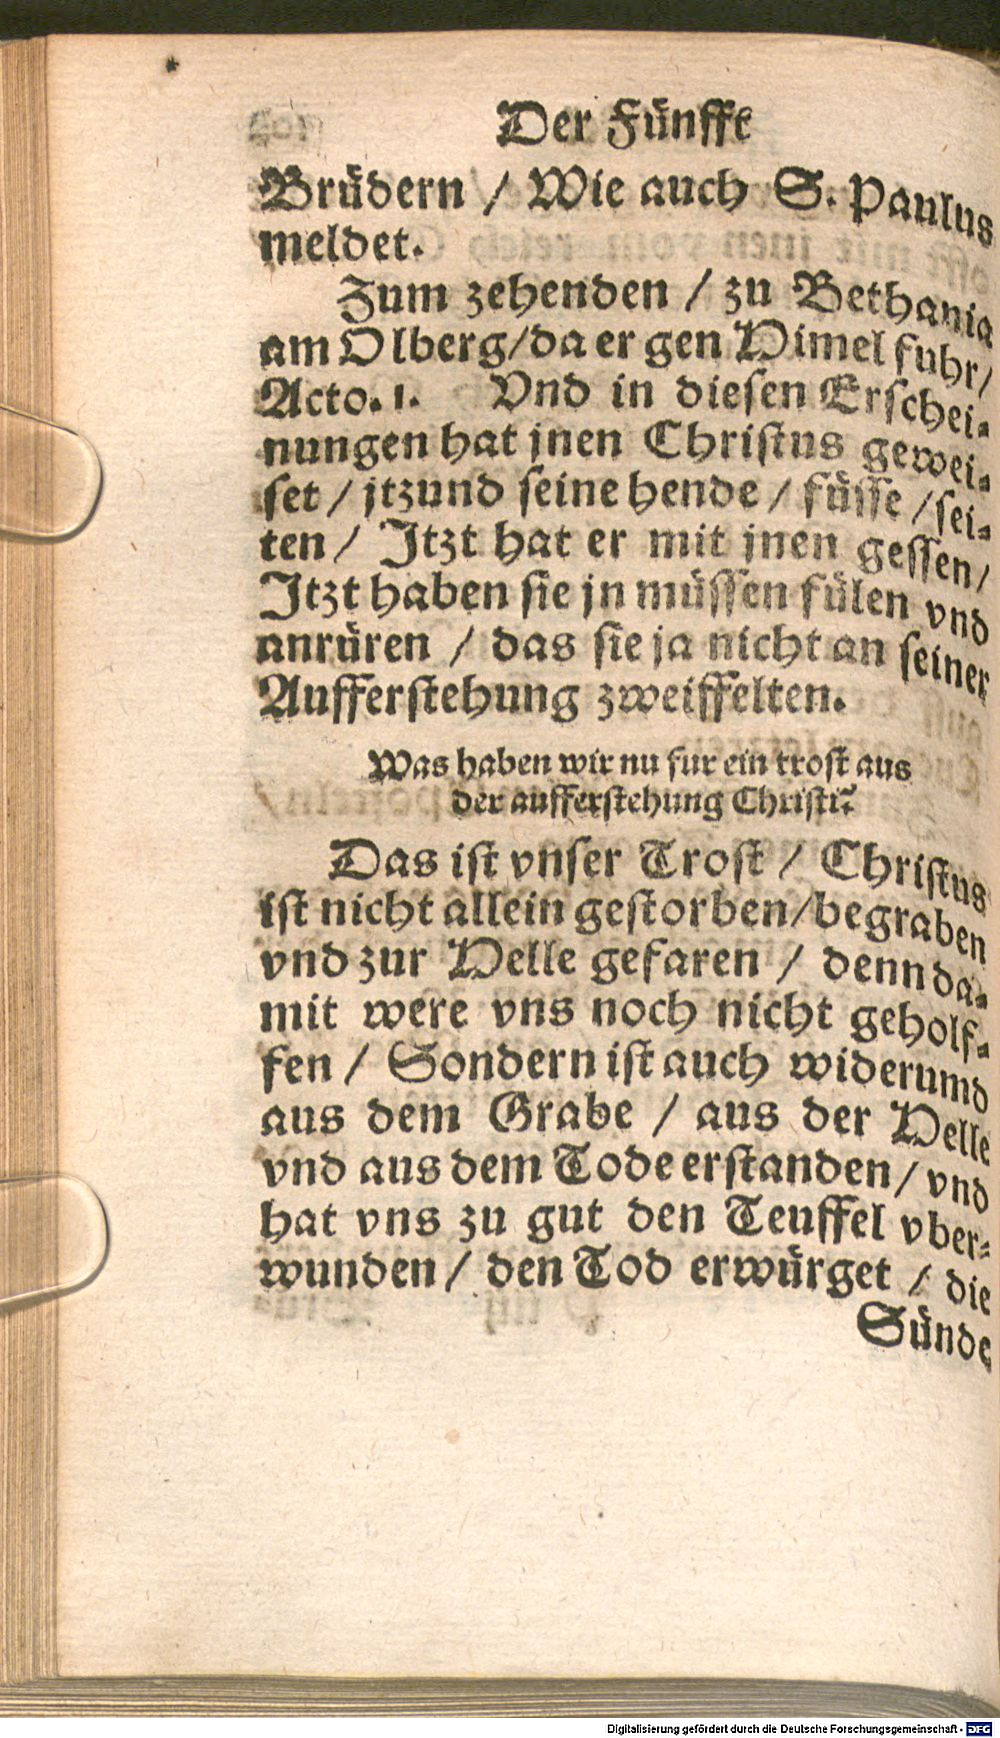 Der Fünfft
Brüdern / Wie auch S. Paulus
meldet.
Zum zehenden / zu Bethania
am Olberg/da er gen Himel fuhr/
Acto. 1. Vnd in diesen Erschei-
nungen hat jnen Christus gewei-
set / jtzund seine hende / füsse / sei-
ten / Jtzt hat er mit jnen gessen/
Jtzt haben sie jn müssen fülen vnd
anrüren / das sie ja nicht an seiner
Aufferstehung zweiffelten.
Was haben wir nu fur ein trost aus
der aufferstehung Christi?
Das ist vnser Trost / Christus
ist nicht allein gestorben/begraben
vnd zur Helle gefaren / denn da-
mit were vns noch nicht geholf-
fen / Sondern ist auch widerumb
aus dem Grabe / aus der Helle
vnd aus dem Tode erstanden / vnd
hat vns zu gut den Teuffel vber-
wunden / den Tod erwürget / die
Sünde
Digitalisierung gefördert durch die Deutsche Forschungsgemeinschaft - DFG